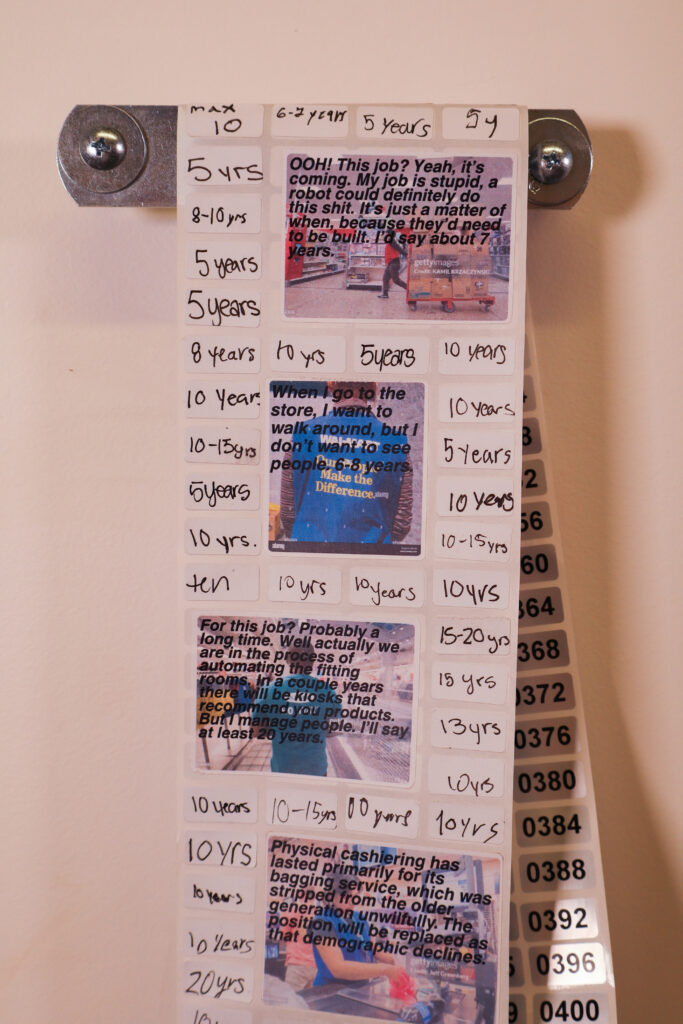 max
10
6-7 years
5 years
5y
5 yrs
8-10 yrs
5 years
5 years
OOH! This job? Yeah, it's
coming. My job is stupid, a
robot could definitely do
this shit. It's just a matter of
when, because they'd need
to be built. I'd say about 7
years.
gettyimages
Credit: KAMIL KRZACZYNSKI
8 years
10 yrs
5 years
10 years
10 Years
10-15yrs
5 years
10 yrs.
When I go to the
store, I want to
walk around, but I
don't want to see
people. 6-8 years.
WAL-MART
Our People
Make the
Difference.
alamy
10 years
5 years
10 years
10-15 yrs
ten
10 yrs
10 years
10 yrs
For this job? Probably a
long time. Well actually we
are in the process of
automating the fitting
rooms. In a couple years
there will be kiosks that
recommend you products.
But I manage people. I'll say
at least 20 years.
15-20 yrs
15 yrs
13 yrs
10 yrs
10 years
10-15 yrs
10 years
10 yrs
10 YRS
10 years
10 Years
20 yrs
Physical cashiering has
lasted primarily for its
bagging service, which was
stripped from the older
generation unwilfully. The
position will be replaced as
that demographic declines.
gettyimages
Credit: Jeff Greenberg
56
60
364
368
0372
0376
0380
0384
0388
0392
0396
0400